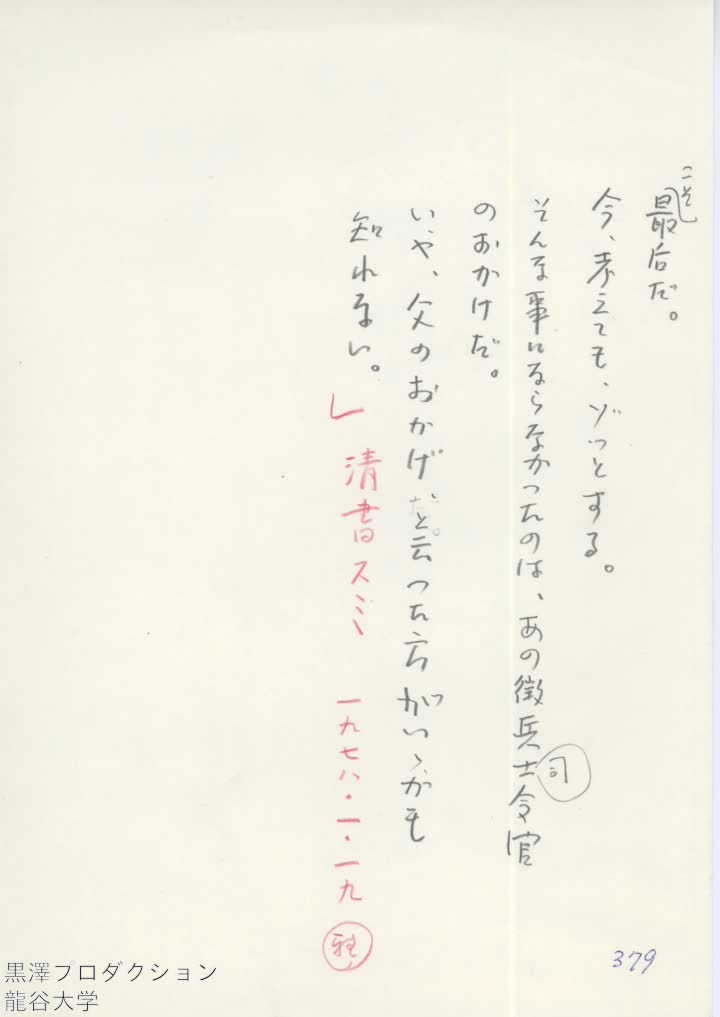 こそ
最后だ。
今、考えても、ゾッとする。
そんな事にならなかったのは、あの徴兵士令官
司
のおかけだ。
いや、父のおかげだと云った方がいゝかも
知れない。
清書スミ 一九七八・一・一九 雅
379
黒澤プロダクション
龍谷大学